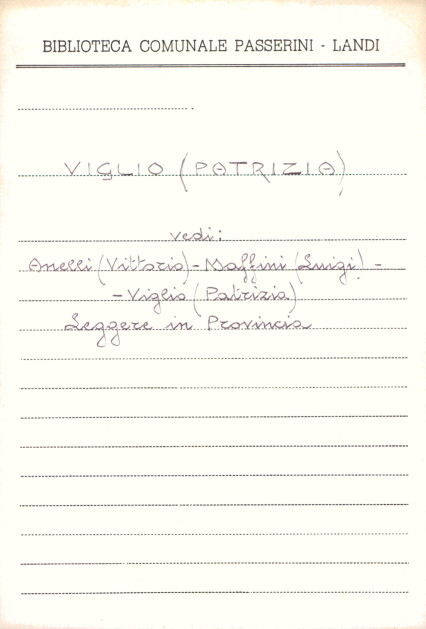 BIBLIOTECA COMUNALE PASSERINI - LANDI
VIGLIO (PATRIZIA)
vedi:
Anelli (Vittorio) - Maffini (Luigi) -
- Viglio (Patrizia)
Leggere in Provincia